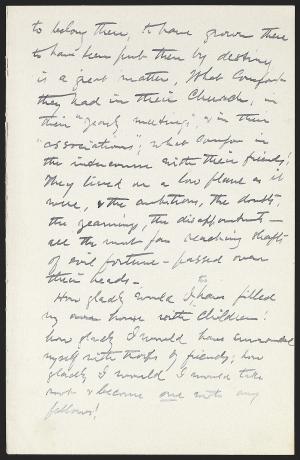 to belong there, to have grown there
to have been put there by destiny
is a great matter. What comfort
they had in their Church, in
their "yearly meetings," & in their
"associations"; what comfort in
the intercourse with their friends!
They lived on a low plane as it
were, & the ambitions, the doubts,
the yearning, the disappointments —
all the most far reaching shafts
of evil fortune — passed over
their heads —
How gladly would I, to have filled
my own house with Children!
how gladly I would have surrounded
myself with troops of friends; how
gladly I would I would take
root & become one with my
fellows!